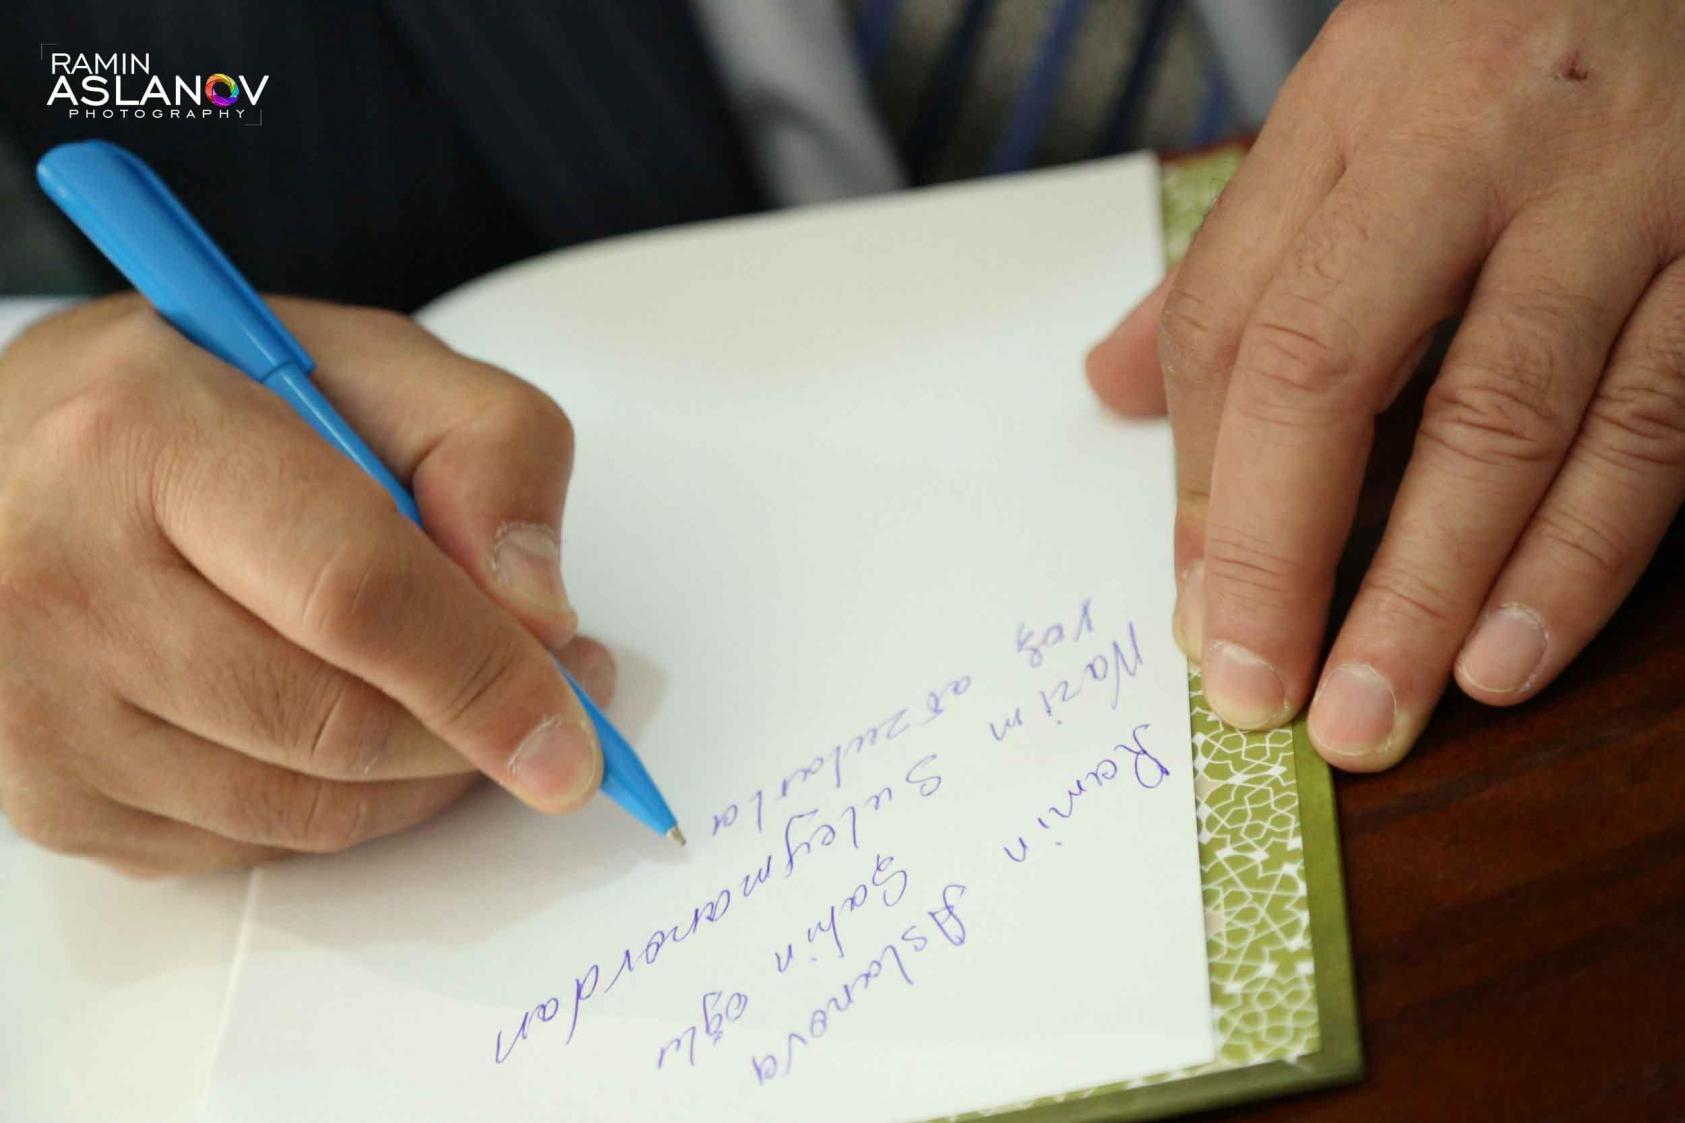 RAMIN
ASLANOV
PHOTOGRAPHY
Ramin Aslanova
Nazim Şahin oğlu
Suleymanovdan
xoş arzularla